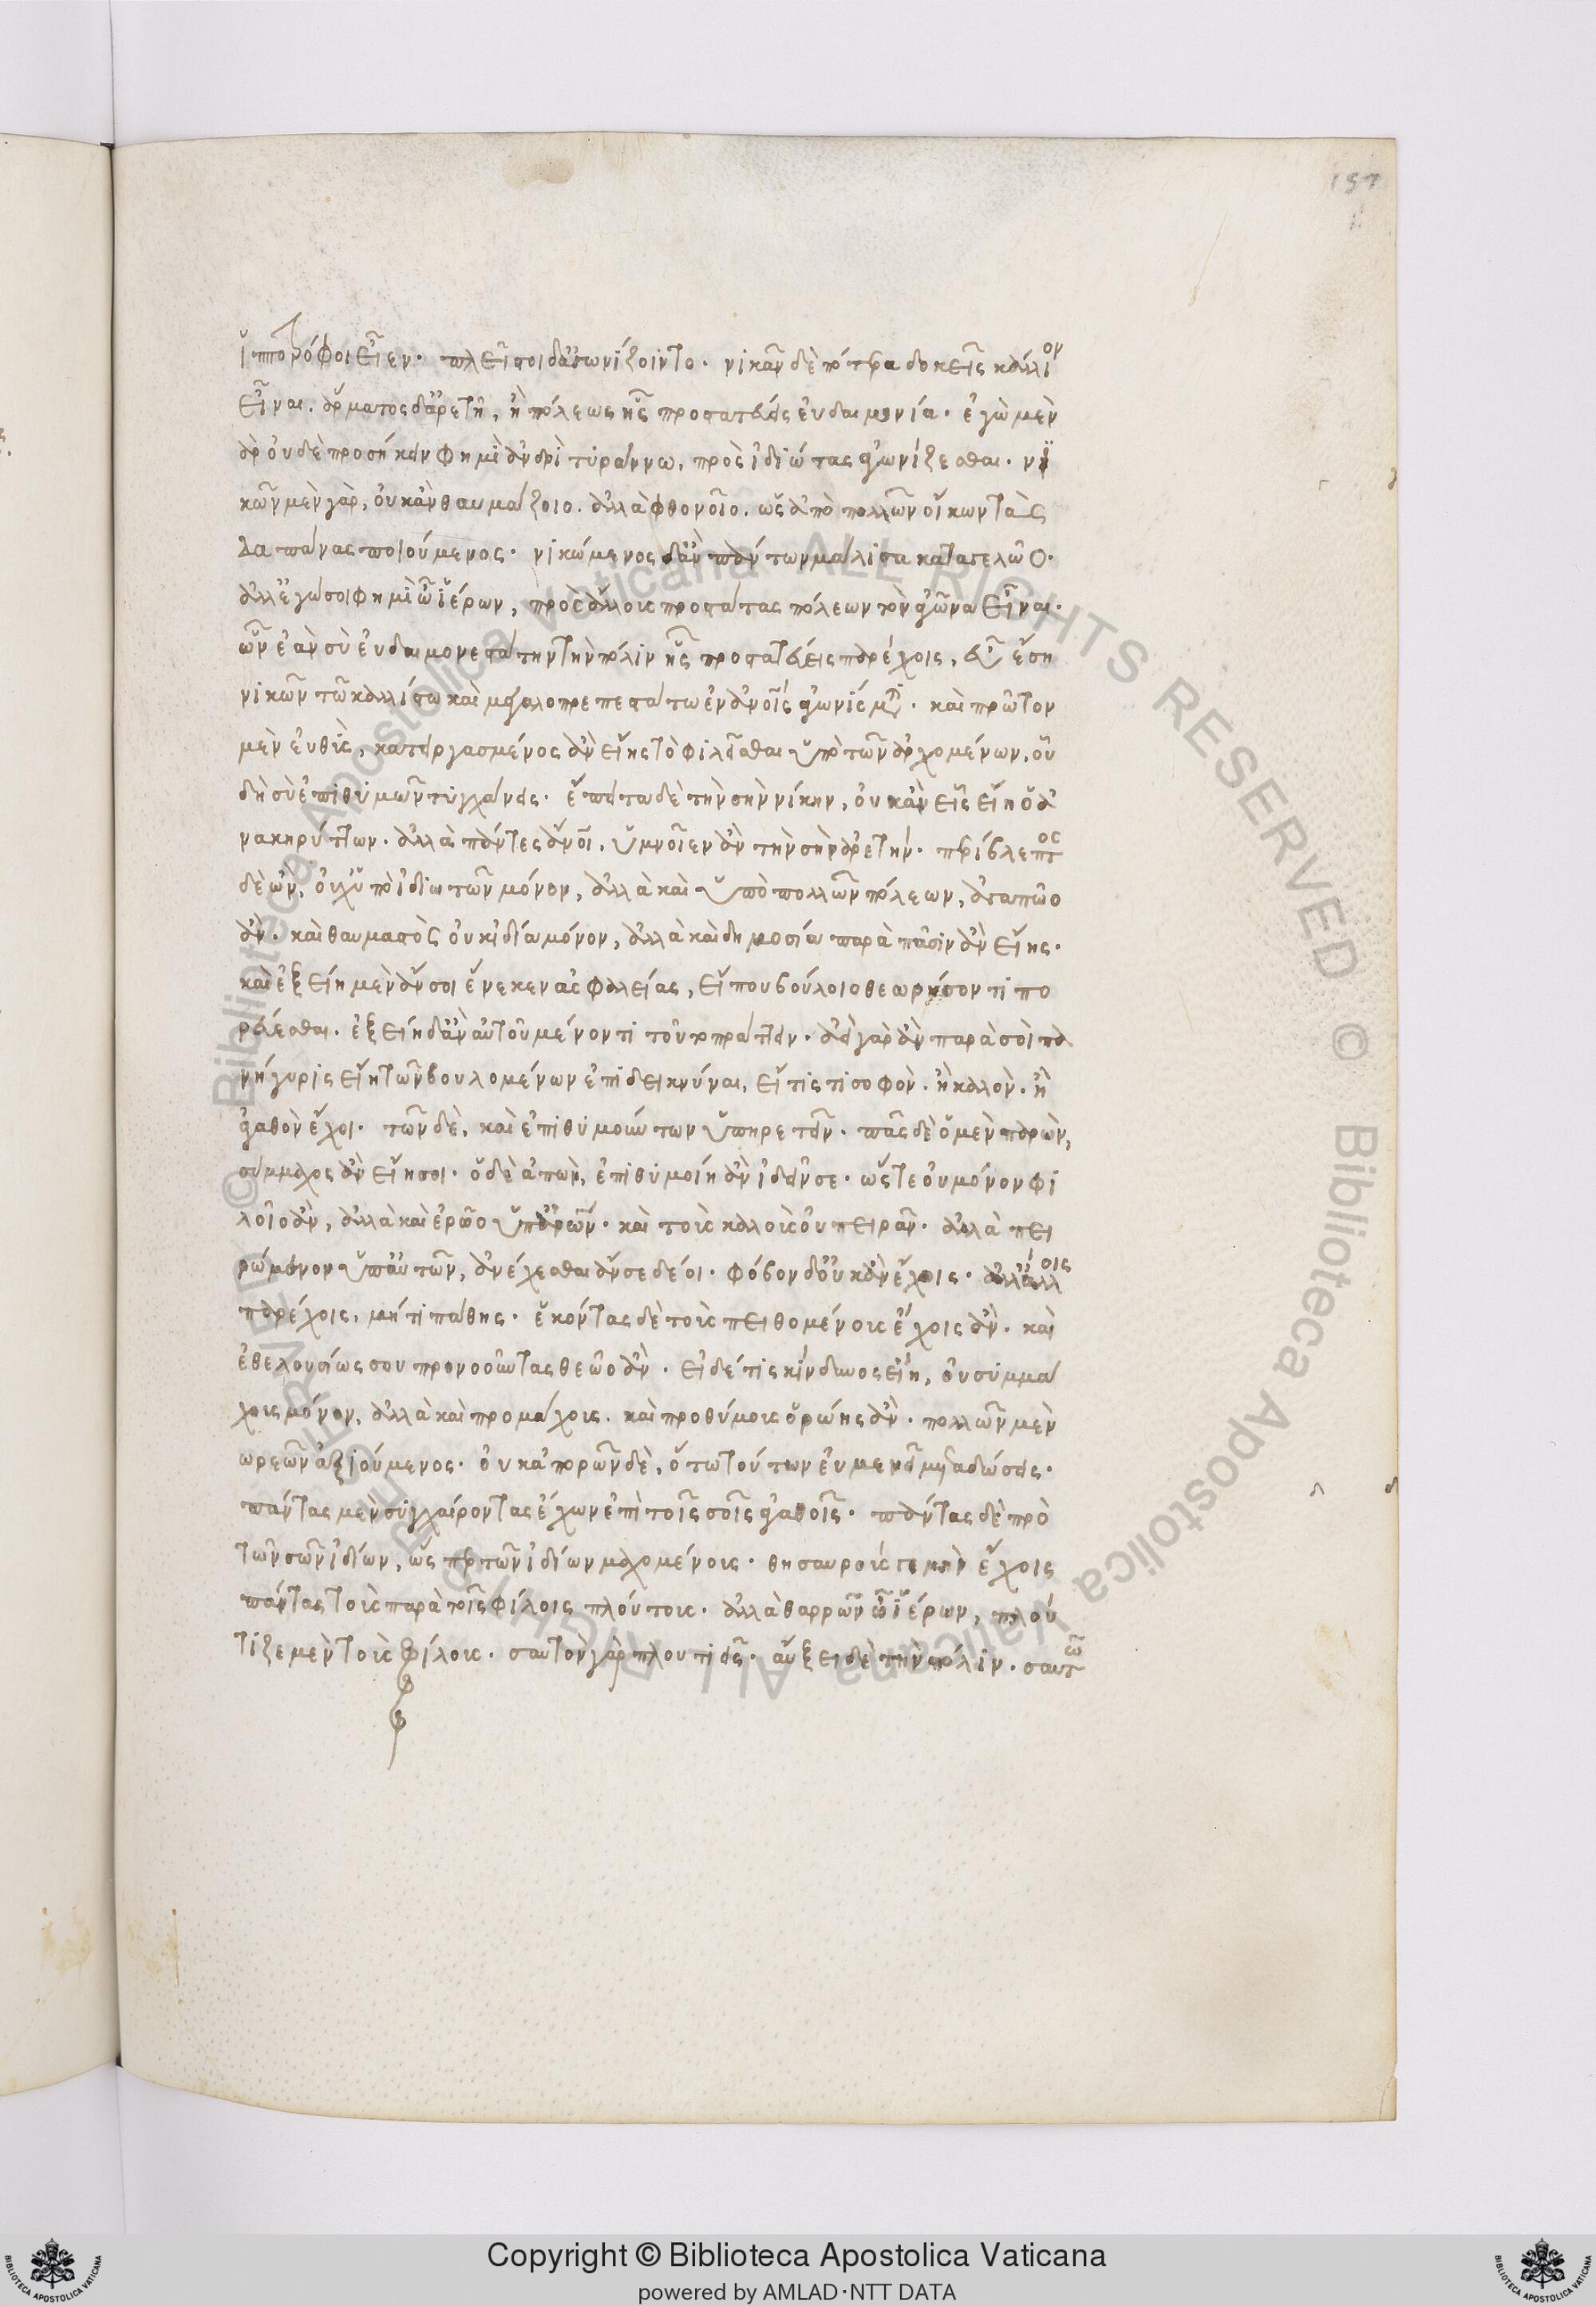 157
ἱπποτρόφοι εἶεν· πλεῖστοι δ' ἀγωνίζοιντο· νικᾶν δὲ πότερα δοκεῖς κάλλιον
εἶναι. ἅρματος δ' ἀρετῆ, ἢ πόλεως ἧς προστατεύεις εὐδαιμονία· ἐγὼ μὲν
γὰρ οὐδὲ προσήκειν φημὶ ἀνδρὶ τυράννω, πρὸς ἰδιώτας ἀγωνίζεσθαι· νι
κῶν μὲν γὰρ, οὐκ ἂν θαυμάζοιο. ἀλλὰ φθονοῖο. ὡς ἀπὸ πολλῶν οἴκων τὰς
δαπάνας ποιούμενος· νικώμενος δ' ἂν πάντων μάλιστα καταγελῶο·
ἀλλ' ἐγώ σοι φημὶ ὦ ἱέρων, πρὸς ἄλλους προστάτας πόλεων τὸν ἀγῶνα εἶναι·
ὧν ἐὰν σὺ εὐδαιμονεστάτην τὴν πόλιν ἧς προστατεύεις παρέχοις, εὖ ἔση
νικῶν τῶ καλλίστω καὶ μεγαλοπρεπεστάτω ἐν ἀνοῖς ἀγωνίσματι· καὶ πρῶτον
μὲν εὐθὺς, κατειργασμένος ἂν εἴης τὸ φιλεῖσθαι ὑπὸ τῶν ἀρχομένων, οὗ
δὴ σὺ ἐπιθυμῶν τυγχάνεις· ἔπειτα δὲ τὴν σὴν νίκην, οὐκ ἂν εἷς εἴη ὁ ἀ
νακηρύττων· ἀλλὰ πάντες ἄνοι, ὑμνοῖεν ἂν τὴν σὴν ἀρετήν· περίβλεπτος
δὲ ὢν, οὐχ ὑπὸ ἰδιωτῶν μόνον, ἀλλὰ καὶ ὑπὸ πολλῶν πόλεων, ἀγαπῶο
ἄν· καὶ θαυμαστὸς οὐκ ἰδία μόνον, ἀλλὰ καὶ δημοσία παρὰ πᾶσιν ἂν εἴης·
καὶ ἐξείη μὲν ἄν σοι ἕνεκεν ἀσφαλείας, εἴ που βούλοιο θεωρήσοντι πο
ρεύεσθαι· ἐξείη δ' ἂν αὐτοῦ μένοντι τοῦτο πράττειν· ἀεὶ γὰρ ἂν παρὰ σοὶ πα
νήγυρις εἴη τῶν βουλομένων ἐπιδεικνύναι, εἴ τίς τι σοφὸν. ἢ καλὸν. ἢ
ἀγαθὸν ἔχοι· τῶν δὲ, καὶ ἐπιθυμούντων ὑπηρετεῖν· πᾶς δὲ ὁ μὲν παρὼν,
σύμμαχος ἂν εἴη σοι· ὁ δὲ ἀπὼν, ἐπιθυμοίη ἂν ἰδεῖν σε· ὥστε οὐ μόνον φι
λοῖο ἂν, ἀλλὰ καὶ ἐρῶο ὑπ' ἀνῶν· καὶ τοὺς καλοὺς οὐ πειρᾶν· ἀλλὰ πει
ρώμενον ὑπ' αὐτῶν, ἀνέχεσθαι ἄν σε δέοι· φόβον δ' οὐκ ἂν ἔχοις· ἀλλ' ἄλλοις
παρέχοις, μή τι πάθης· ἑκόντας δὲ τοὺς πειθομένους ἔχοις ἄν· καὶ
ἐθελουσίως σου προνοοῦντας θεῶο ἄν· εἰ δέ τις κίνδυνος εἴη, οὐ συμμά
χους μόνον, ἀλλὰ καὶ προμάχους. καὶ προθύμους ὁρώης ἄν· πολλῶν μὲν
δωρεῶν ἀξιούμενος· οὐκ ἀπορῶν δὲ, ὅτω τούτων εὐμενεῖ μεταδώσεις·
πάντας μὲν συγχαίροντας ἔχων ἐπὶ τοῖς σοῖς ἀγαθοῖς· πάντας δὲ πρὸ
τῶν σῶν ἰδίων, ὡς περ τῶν ἰδίων μαχομένους· θησαυρούς γε μὴν ἔχοις
πάντας τοὺς παρὰ τοῖς φίλοις πλούτους· ἀλλὰ θαρρῶν ὦ ἱέρων, πλού
τιζε μὲν τοὺς φίλους· σαυτὸν γὰρ πλουτιεῖς· αὖξε δὲ τὴν πόλιν· σαυτῶ
Copyright © Biblioteca Apostolica Vaticana
powered by AMLAD·NTT DATA
© Biblioteca Apostolica Vaticana ALL RIGHTS RESERVED